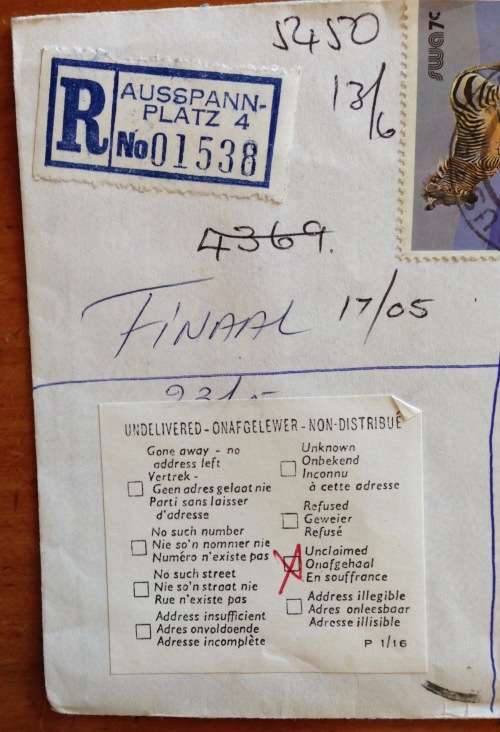 5450
13/6
swa 7c
R AUSSPANN-
PLATZ 4
No 01538
4369.
FINAAL 17/05
UNDELIVERED - ONAFGELEWER - NON-DISTRIBUÉ
Gone away - no
address left
Vertrek -
Geen adres gelaat nie
Parti sans laisser
d'adresse
No such number
Nie so'n nommer nie
Numéro n'existe pas
No such street
Nie so'n straat nie
Rue n'existe pas
Address insufficient
Adres onvoldoende
Adresse incomplète
Unknown
Onbekend
Inconnu
à cette adresse
Refused
Geweier
Refusé
Unclaimed
Onafgehaal
En souffrance
Address illegible
Adres onleesbaar
Adresse illisible
P 1/16